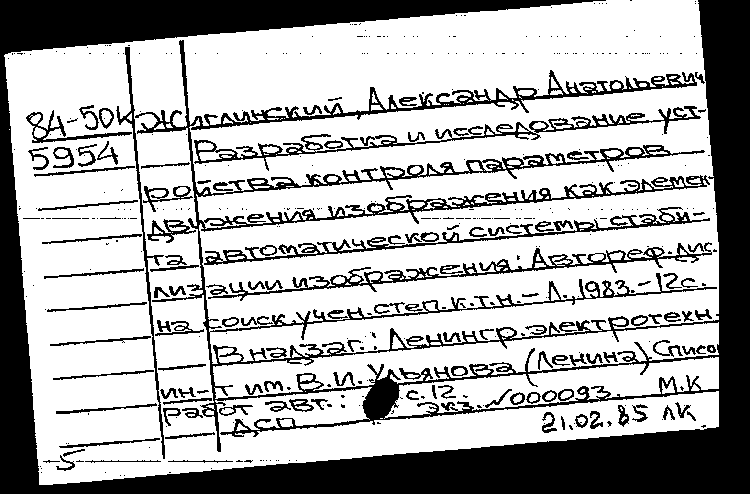 84-50К Жиглинский, Александр Анатольевич
5954 Разработка и исследование уст-
ройства контроля параметров
движения изображения как элемен-
та автоматической системы стаби-
лизации изображения: Автореф. дис.
на соиск. учен. степ. к.т.н. - Л., 1983. - 12 с.
В надзаг.: Ленингр. электротехн.
ин-т им. В.И. Ульянова (Ленина). Список
работ авт.: с. 12. М.К
ДСП Экз. №000093.
21.02.85 ЛК
5